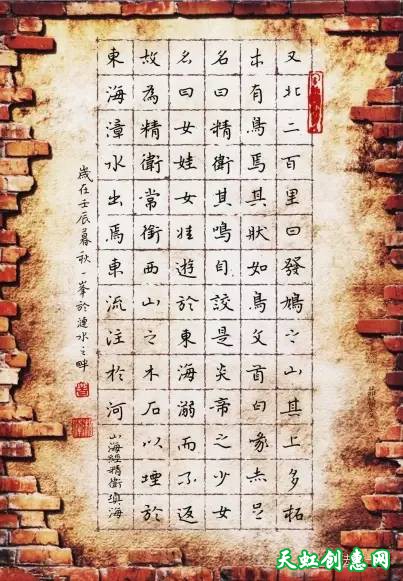 又北二百里曰發鳩之山其上多柘
木有鳥焉其狀如烏文首白喙赤足
名曰精衛其鳴自詨是炎帝之少女
名曰女娃女娃遊於東海溺而不返
故為精衛常銜西山之木石以堙於
東海漳水出焉東流注於河
山海經精衛填海
歲在壬辰暮秋一峯於漣水之畔
天虹创惠网